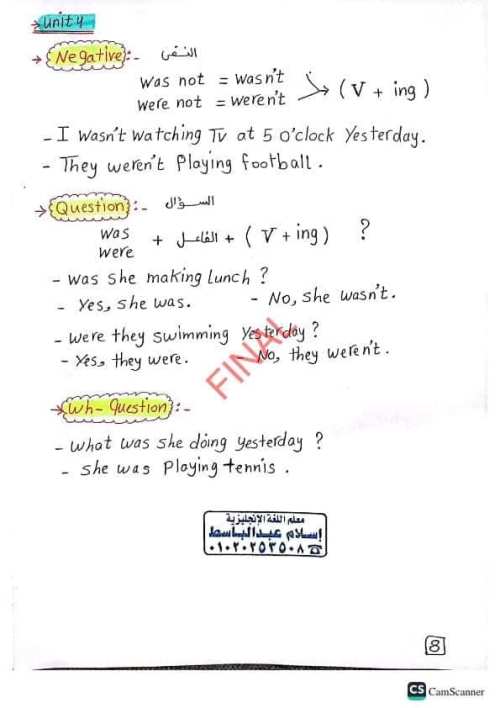 → Unit 4
→ {Negative}:- النفى
was not = wasn't
were not = weren't
(V + ing)
- I wasn't watching TV at 5 o'clock Yesterday.
- They weren't Playing football.
→ {Question}:- السؤال
was
were + الفاعل + (V + ing) ?
- was she making lunch ?
- Yes, she was. - No, she wasn't.
- were they swimming Yesterday ?
- Yes, they were. - No, they weren't.
FINAL
→ {Wh- Question}:-
- What was she doing yesterday ?
- she was Playing tennis .
معلم اللغة الإنجليزية
إسلام عبدالباسط
٠١٠٢٠٢٥٣٥٠٨
8
CS CamScanner